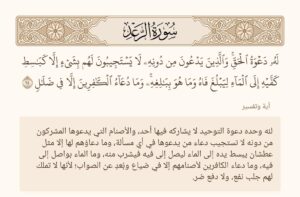 سُورَةُ الرَّعْدِ
لَهُۥ دَعْوَةُ ٱلْحَقِّ ۖ وَٱلَّذِينَ يَدْعُونَ مِن دُونِهِۦ لَا يَسْتَجِيبُونَ لَهُم بِشَىْءٍ إِلَّا كَبَـٰسِطِ
كَفَّيْهِ إِلَى ٱلْمَآءِ لِيَبْلُغَ فَاهُ وَمَا هُوَ بِبَـٰلِغِهِۦ ۚ وَمَا دُعَآءُ ٱلْكَـٰفِرِينَ إِلَّا فِى ضَلَـٰلٍ
آية وتفسير
لله وحده دعوة التوحيد لا يشاركه فيها أحد، والأصنام التي يدعوها المشركون
من دونه لا تستجيب دعاء من يدعوها في أي مسألة، وما دعاؤهم لها إلا مثل
عطشان يبسط يده إلى الماء ليصل إلى فيه فيشرب منه، وما الماء بواصل إلى
فيه، وما دعاء الكافرين لأصنامهم إلا في ضياع وبُعدٍ عن الصواب؛ لأنها لا تملك
لهم جلب نفع، ولا دفع ضر.